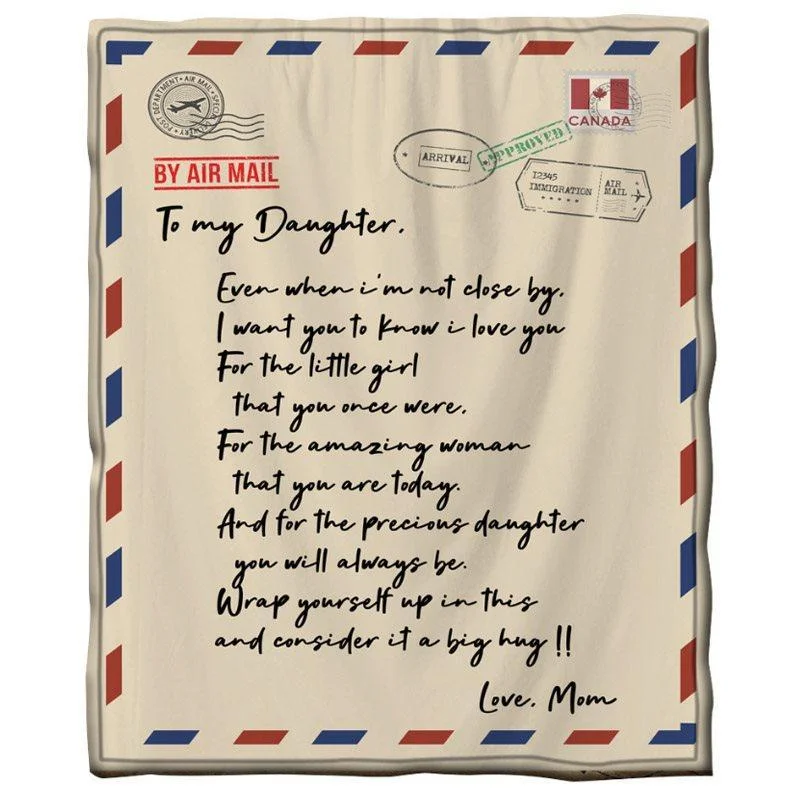 POST DEPARTMENT • AIR MAIL • SPECIAL DELIVERY •
CANADA
APPROVED
ARRIVAL
12345
IMMIGRATION
AIR
MAIL
BY AIR MAIL
To my Daughter,
Even when i'm not close by,
I want you to know i love you
For the little girl
that you once were.
For the amazing woman
that you are today.
And for the precious daughter
you will always be.
Wrap yourself up in this
and consider it a big hug !!
Love, Mom